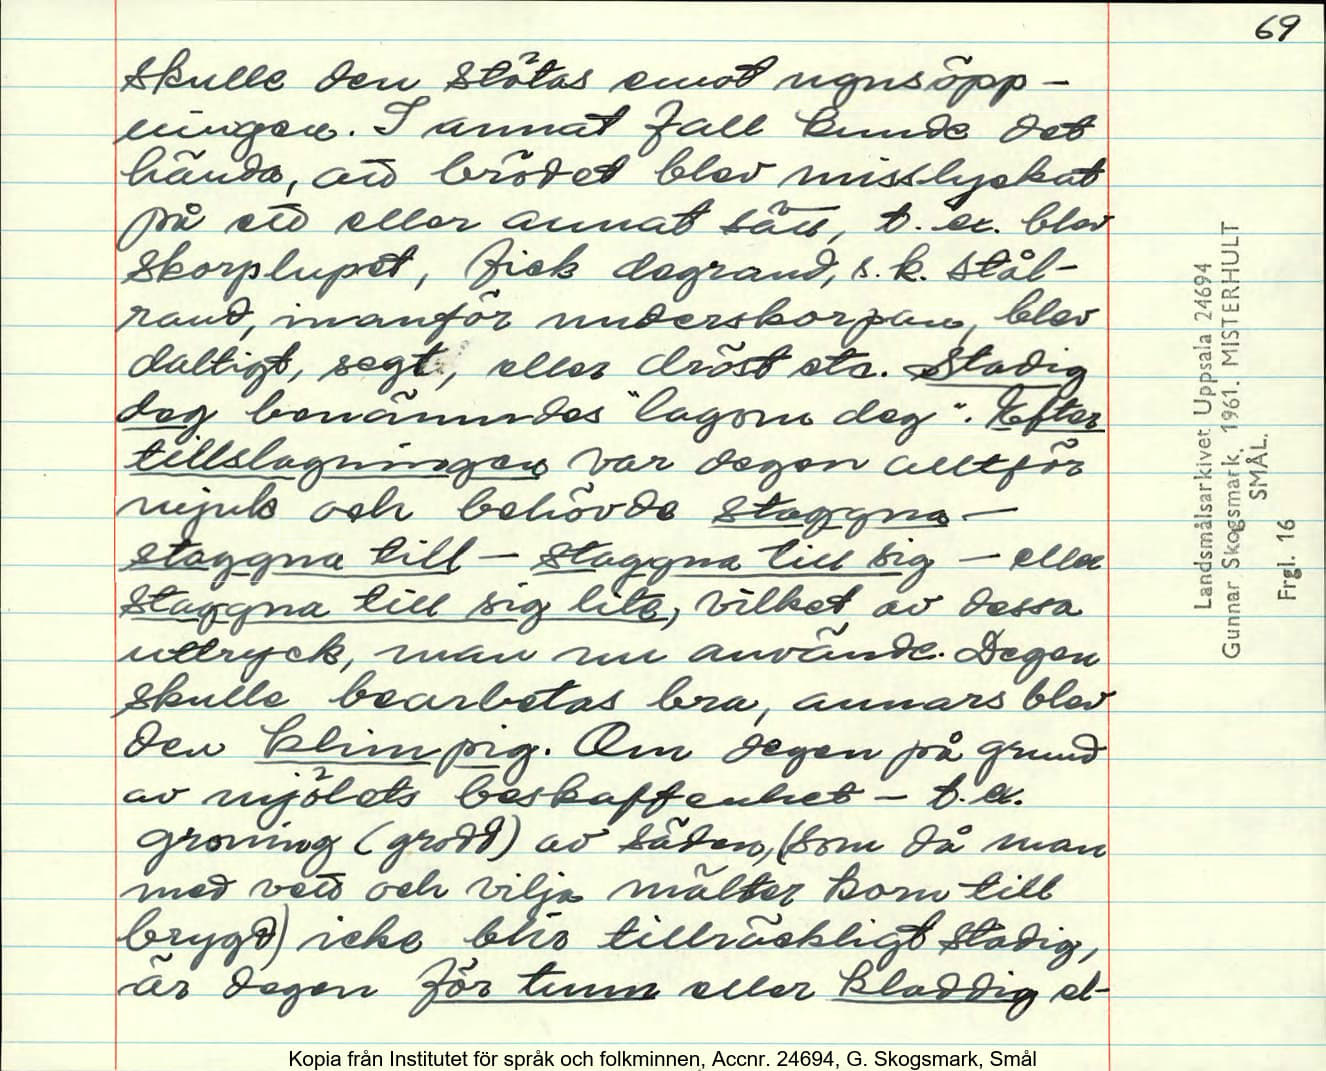 69
skulle den stötas emot ugnsöpp-
ningen. I annat fall kunde det
hända, att brödet blev misslyckat
på ett eller annat sätt, t. ex. blev
skorplupet, fick degrand, s. k. stål-
rand, innanför underskorpan, blev
daltigt, segt, eller dröst etc. Stadig
deg benämndes "lagom deg". Efter
tillslagningen var degen alltför
mjuk och behövde staggna -
staggna till - staggna till sig - eller
staggna till sig lite, vilket av dessa
uttryck, man nu använde. Degen
skulle bearbetas bra, annars blev
den klimpig. Om degen på grund
av mjölets beskaffenhet - t. ex.
groning (grodd) av säden, (som då man
med vett och vilja mälter korn till
brygd) icke blir tillräckligt stadig,
är degen för tunn eller kladdig el-
Landsmålsarkivet Uppsala 24694
Gunnar Skogsmark, 1961. MISTERHULT
SMÅL.
Frgl. 16
Kopia från Institutet för språk och folkminnen, Accnr. 24694, G. Skogsmark, Smål